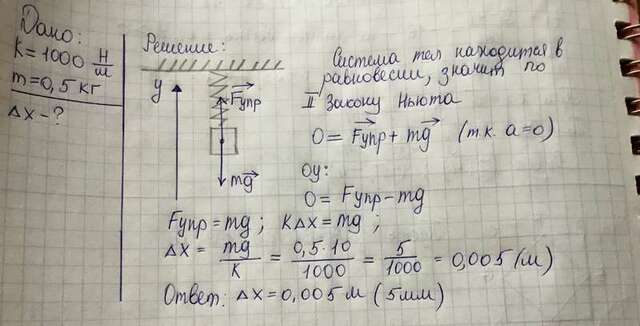 Дано:
k = 1000 Н/м
m = 0,5 кг
Δx - ?
Решение:
y
Fупр
mg
Система тел находится в
равновесии, значит по
II Закону Ньюта
0 = Fупр + mg (т.к. a=0)
оу:
0 = Fупр - mg
Fупр = mg ; kΔx = mg ;
Δx = mg/k = 0,5·10/1000 = 5/1000 = 0,005 (м)
Ответ: Δx = 0,005 м (5мм)